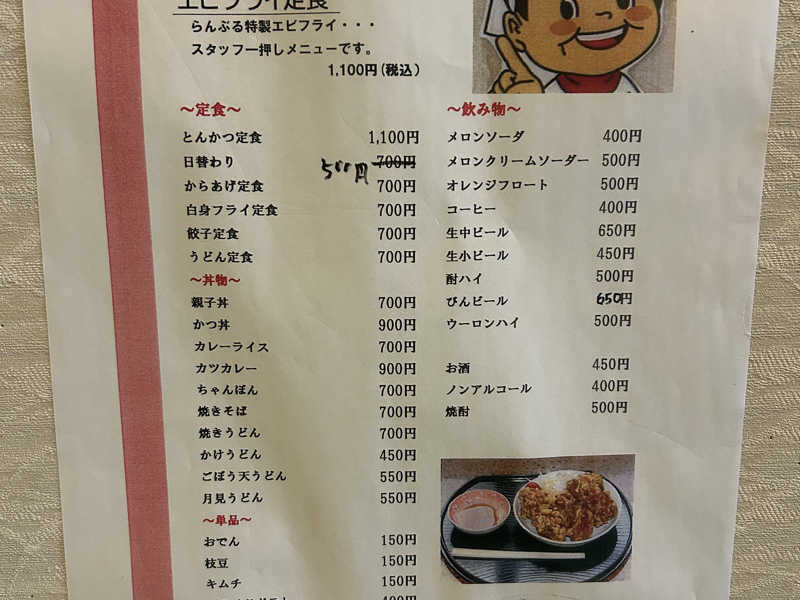 エビフライ定食
らんぶる特製エビフライ・・・
スタッフ一押しメニューです。
1,100円(税込)
～定食～
とんかつ定食 1,100円
日替わり 500円 700円
からあげ定食 700円
白身フライ定食 700円
餃子定食 700円
うどん定食 700円
～丼物～
親子丼 700円
かつ丼 900円
カレーライス 700円
カツカレー 900円
ちゃんぽん 700円
焼きそば 700円
焼きうどん 700円
かけうどん 450円
ごぼう天うどん 550円
月見うどん 550円
～単品～
おでん 150円
枝豆 150円
キムチ 150円
～飲み物～
メロンソーダ 400円
メロンクリームソーダー 500円
オレンジフロート 500円
コーヒー 400円
生中ビール 650円
生小ビール 450円
酎ハイ 500円
びんビール 650円
ウーロンハイ 500円
お酒 450円
ノンアルコール 400円
焼酎 500円